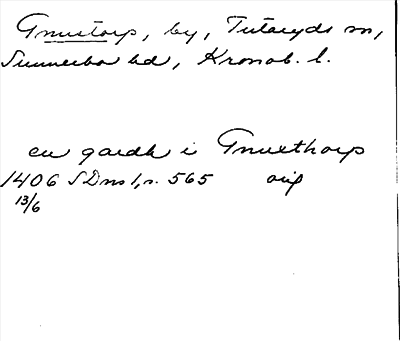 Gnustorp, by, Tutaryds sn,
Sunnerbo hd, Kronob. l.
en gardh i Gnusthorp
1406 SDns 1, s. 565 orig
13/6